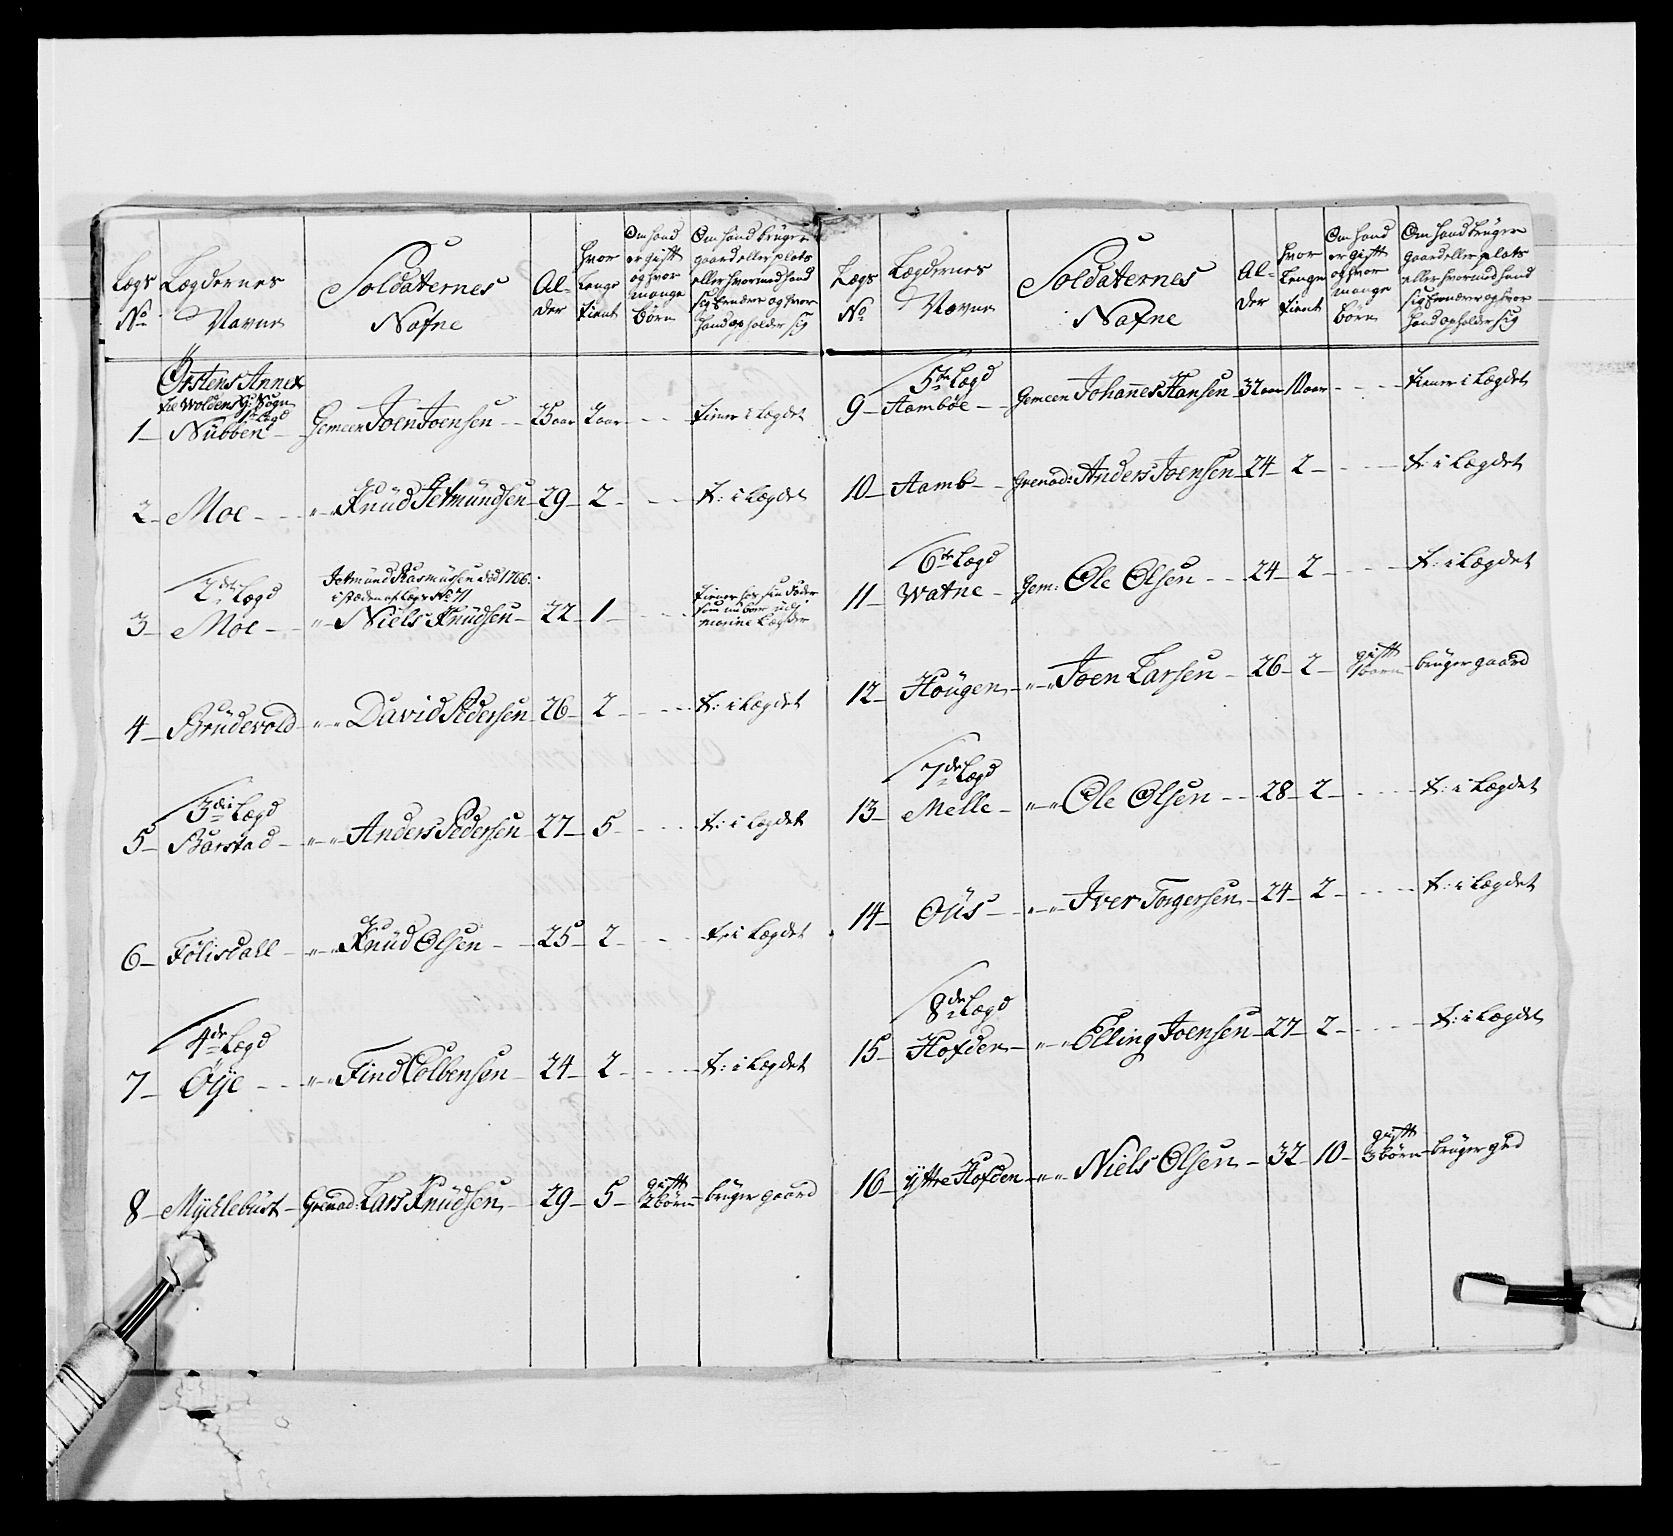 Lægs No
Lægdernes Navne
Soldaternes Nafne
Al- der
hvor længe tient
Om hand er gift og hvor mange børn
Om hand bruger gaard eller plats eller hvormed hand sig ernærer og hvor hand opholder sig
Ørstens Annex
til Woldens Sogn
1 – Nübben – Gemeen Joen Joensen – 25 aar 2 aar – tiener i Lægdet
2 – Moe – " Knüd Jetmündsen – 29 – 2 – t: i Lægdet
2de Lægd
Jetmünd Rasmussen død 1766.
i stæden af Lægs No 71
3 – Moe – " Niels Knüdsen – 22 – 1 – tiener hos sin Fader
som nu boer udj
marine Lægder
4 – Brüdevold – " David Pedersen – 26 – 2 – t: i Lægdet
3die Lægd
5 – Barstad – " Anders Pedersen – 27 – 5 – t: i Lægdet
6 – Folisdall – " Knüd Olsen – 25 – 2 – t: i Lægdet
4de Lægd
7 – Øÿe – " Find Colbensen – 24 – 2 – t: i Lægdet
8 – Mÿcklebust – Grenad: Lars Knüdsen – 29 – 5 – gift 2 børn – brüger gaard
Lægs No
Lægdernes Navne
Soldaternes Nafne
Al- der
hvor længe tient
Om hand er gift og hvor mange børn
Om hand bruger gaard eller plats eller hvormed hand sig ernærer og hvor hand opholder sig
5te Lægd
9 – Aambøe – Gemeen Johannes Hansen – 32 aar 10 aar – tiener i Lægdet
10 – Aamb – Grenad: Anders Joensen – 24 – 2 – t: i Lægdet
6te Lægd
11 – Watne – Gem: Ole Olsen – 24 – 2 – t: i Lægdet
12 – Hougen – " Joen Larsen – 26 – 2 – gift 1 barn – brüger gaard
7de Lægd
13 – Melle – " Ole Olsen – 28 – 2 – t: i Lægdet
14 – Oüs – " Iver Torgersen – 24 – 2 – t: i Lægdet
8de Lægd
15 – Hofden – " Elling Joensen – 27 – 2 – t: i Lægdet
16 – ÿttre Hofden – " Niels Olsen – 32 – 10 – gift 3 børn – brüger grd